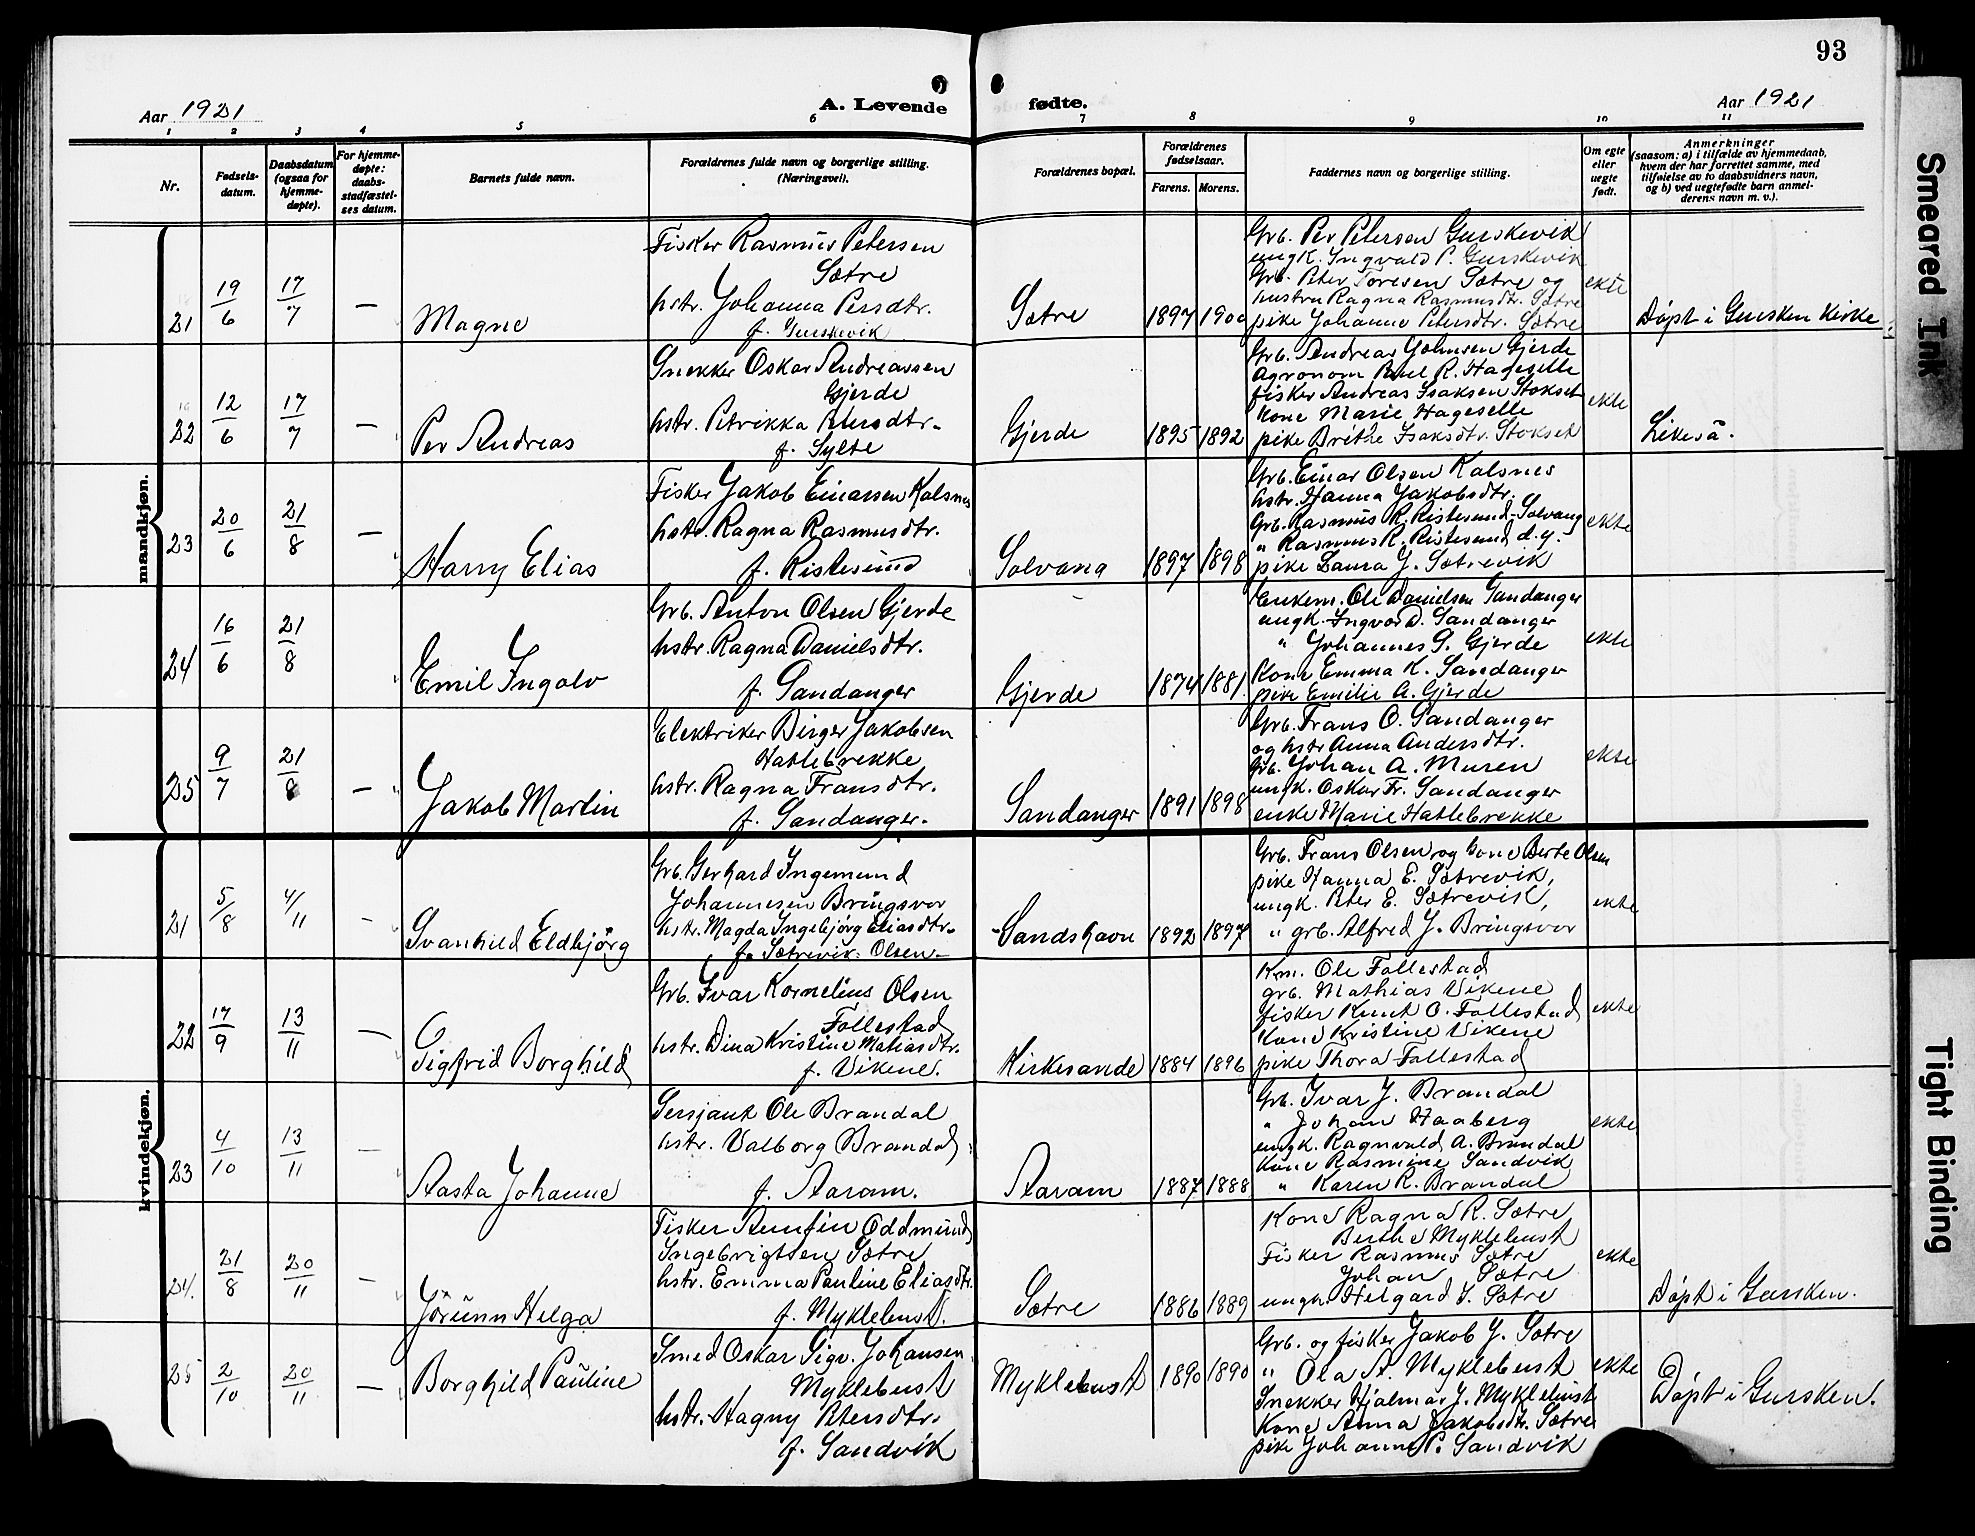 93
Aar 1921
A. Levende
fødte.
Aar 1921
1 2 3 4 5 6 7 8 9 10 11
Nr.
Fødsels-
datum.
Daabsdatum
(ogsaa for
hjemme-
døpte).
For hjemme-
døpte:
daabs-
stadfæstel-
ses datum.
Barnets fulde navn.
Forældrenes fulde navn og borgerlige stilling.
(Næringsvei).
Forældrenes bopæl.
Forældrenes
fødselsaar.
Farens. Morens.
Faddernes navn og borgerlige stilling.
Om egte
eller
uegte
født.
Anmerkninger
(saasom: a) i tilfælde av hjemmedaab,
hvem der har forrettet samme, med
tilføielse av to daabsvidners navn,
og b) ved uegtefødte barn anmel-
derens navn m. v.).
mandkjøn.
21 19/6 17/7 — Magne
Fisker Rasmus Petersen
Sætre
hstr. Johanna Persdtr.
f. Gurskevik
Sætre 1897 1900
Grb. Per Petersen Gurskevik
ungk. Ingvald P. Gurskevik
Grb. Peter Toresen Sætre og
hustru Ragna Rasmusdtr. Sætre
pike Johanne Petersdtr. Sætre
ekte
Døpt i Gursken Kirke
22 12/6 17/7 — Per Andreas
Snekker Oskar Andreassen
Gjerde
hstr. Petrikka Petersdtr.
f. Sylte
Gjerde 1895 1892
Grb. Andreas Johnsen Gjerde
Agronom Paul R. Hageselle
fisker Andreas Isaksen Stokset
Kone Marie Hageselle
pike Brithe Isaksdtr. Stokset
ekte
Likeså.
23 20/6 21/8 — Harry Elias
Fisker Jakob Einarsen Kalsnes
hstr. Ragna Rasmusdtr.
f. Ristesund
Solvang 1897 1898
Grb. Einar Olsen Kalsnes
hstr. Hanna Jakobsdtr.
Grb. Rasmus R. Ristesund-Solvang
" Rasmus R. Ristesund d.y.
pike Laura J. Sætrevik
ekte
24 16/6 21/8 Emil Ingolv
Grb. Anton Olsen Gjerde
hstr. Ragna Danielsdtr.
f. Sandanger
Gjerde 1874 1881
Enkem. Ole Danielsen Sandanger
ungk. Ingvar D. Sandanger
" Johannes S. Gjerde
Kone Emma K. Sandanger
pike Emilie A. Gjerde
ekte
25 9/7 21/8 — Jakob Martin
Elektriker Birger Jakobsen
Hatlebrekke
hstr. Ragna Fransdtr.
f. Sandanger.
Sandanger 1891 1898
Grb. Frans O. Sandanger
og hstr Anna Andersdtr.
Grb. Johan A. Muren
ungk. Oskar Fr. Sandanger
enke Marie Hatlebrekke
ekte
kvindekjøn.
21 5/8 4/11 - Svanhild Eldbjörg
Grb. Gerhard Ingemund
Johannesen Bringsvor
hstr. Magda Ingebjörg Eliasdtr.
f. Sætrevik. Olsen.
Sandshavn 1892 1897
Grb. Frans Olsen og kone Berte Olsen
pike Hanna E. Sætrevik,
ungk. Peter E. Sætrevik,
" grb. Alfred J. Bringsvor
ekte
22 17/9 13/11 — Sigfrid Borghild
Grb. Ivar Kornelius Olsen
Follestad
hstr. Dina Kristine Matiasdtr.
f. Vikene.
Kirkesande 1884 1896
Km. Ole Follestad
grb. Mathias Vikene
fisker Knut O. Follestad
Kone Kristine Vikene
pike Thora Follestad
ekte
23 4/10 13/11 — Aasta Johanne
Sersjant Ole Brandal
hstr. Valborg Brandal
f. Aaram.
Aaram 1887 1888
Grb. Ivar J. Brandal
" Johan Haaberg
ungk. Ragnvald A. Brandal
Kone Rasmine Sandvik
" Karen R. Brandal
ekte
24. 21/8 20/11 — Jörunn Helga
Fisker Arnfin Oddmund
Ingebrigtsen Sætre
hstr. Emma Pauline Eliasdtr.
f. Myklebust.
Sætre 1886 1889
Kone Ragna R. Sætre
Berthe Myklebust
Fisker Rasmus Sætre
Johan Sætre
ungk. Helgard I. Sætre
ekte
Døpt i Gursken.
25 2/10 20/11 — Borghild Pauline
Smed Oskar Sigv. Johansen
Myklebust
hstr. Hagny Petersdtr.
f. Sandvik
Myklebust 1890 1890
Grb. og fisker Jakob J. Sætre
" Ola A. Myklebust
Snekker Hjalmar J. Myklebust
Kone Anna Jakobsdtr. Sætre
pike Johanne P. Sandvik
ekte
Døpt i Gursken.
Smeared Ink
Tight Binding